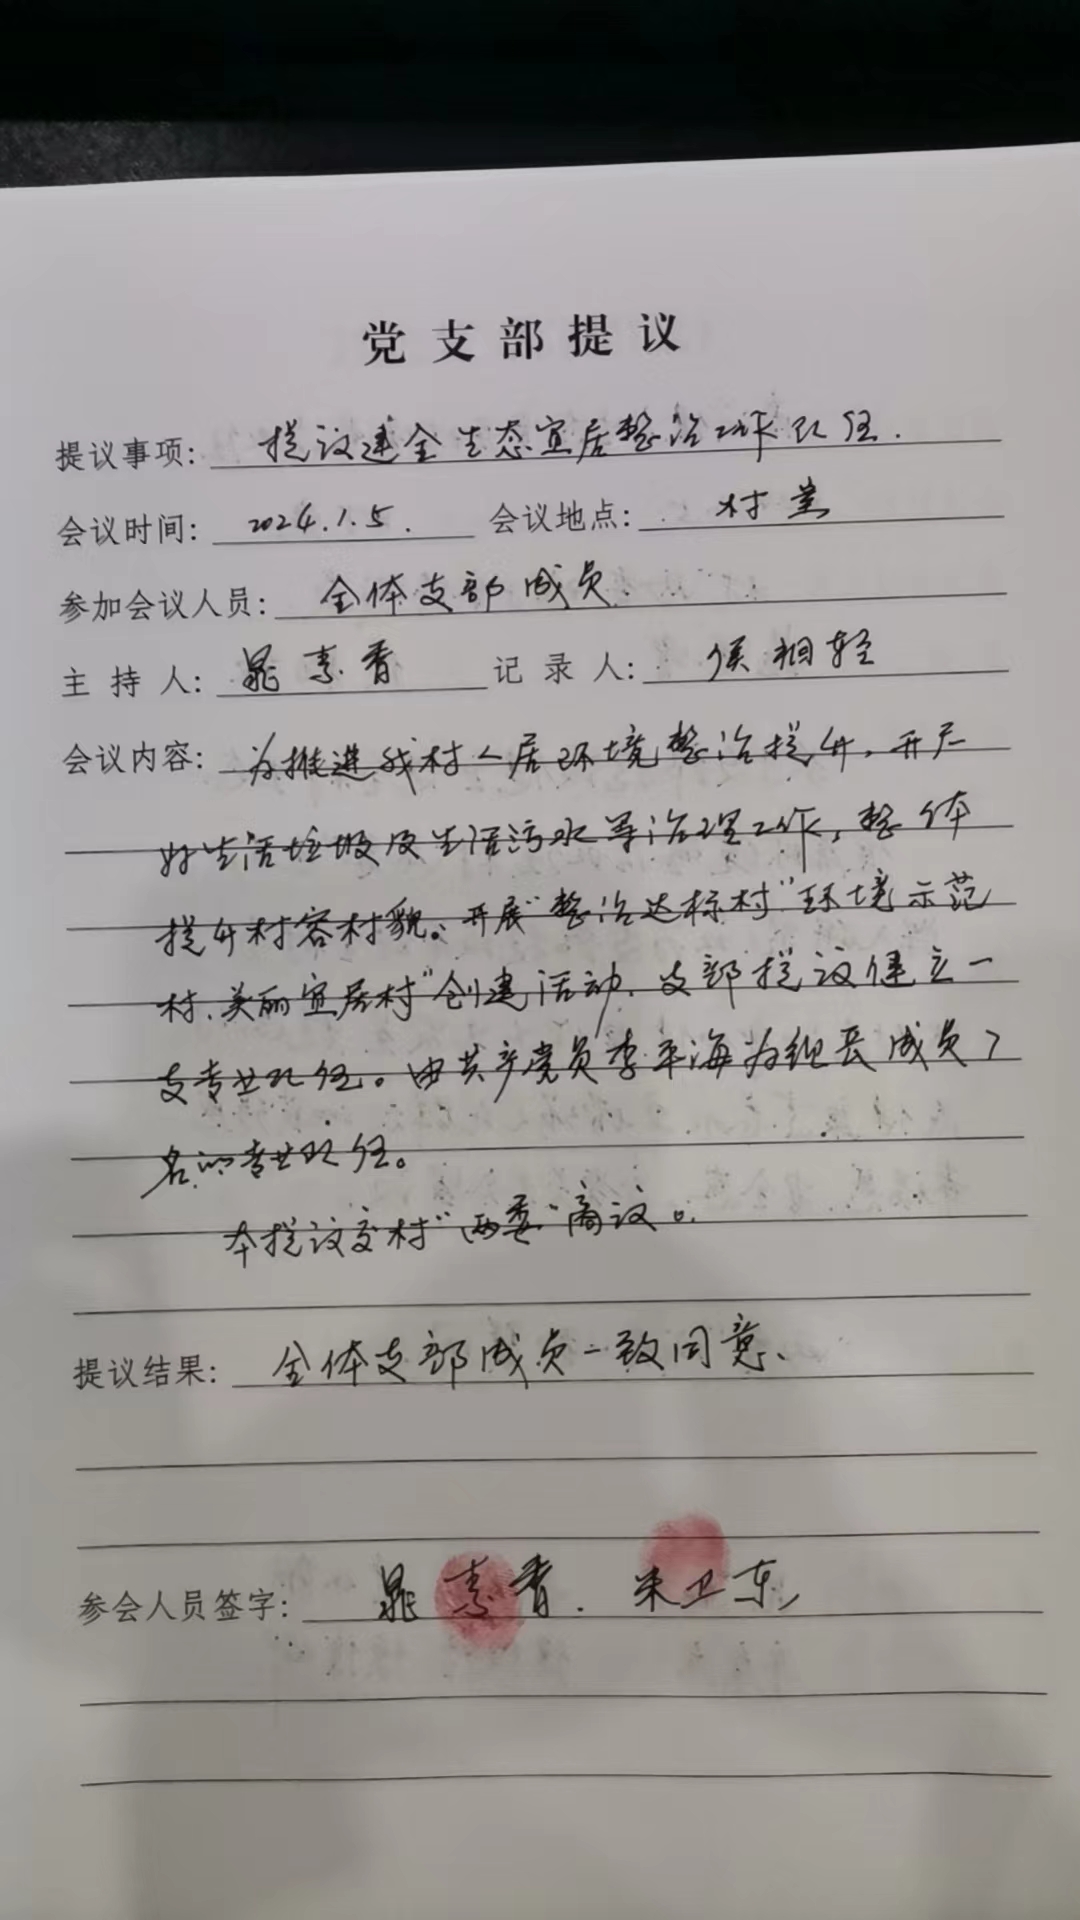 党支部提议
提议事项: 提议建全生态宜居整治工作队伍.
会议时间: 2024.1.5. 会议地点: 村党
参加会议人员: 全体支部成员.
主持人: 晁素香 记录人: 侯相轻
会议内容: 为推进我村人居环境整治提升,开广
好生活垃圾及生活污水等治理工作,整体
提升村容村貌。开展“整治达标村”环境示范
村、美丽宜居村”创建活动.支部提议健立一
支专业队伍。由共产党员李平海为组长成员7
名的专业队伍。
本提议交村“两委”商议。
提议结果: 全体支部成员一致同意、
参会人员签字: 晁素香. 朱卫东